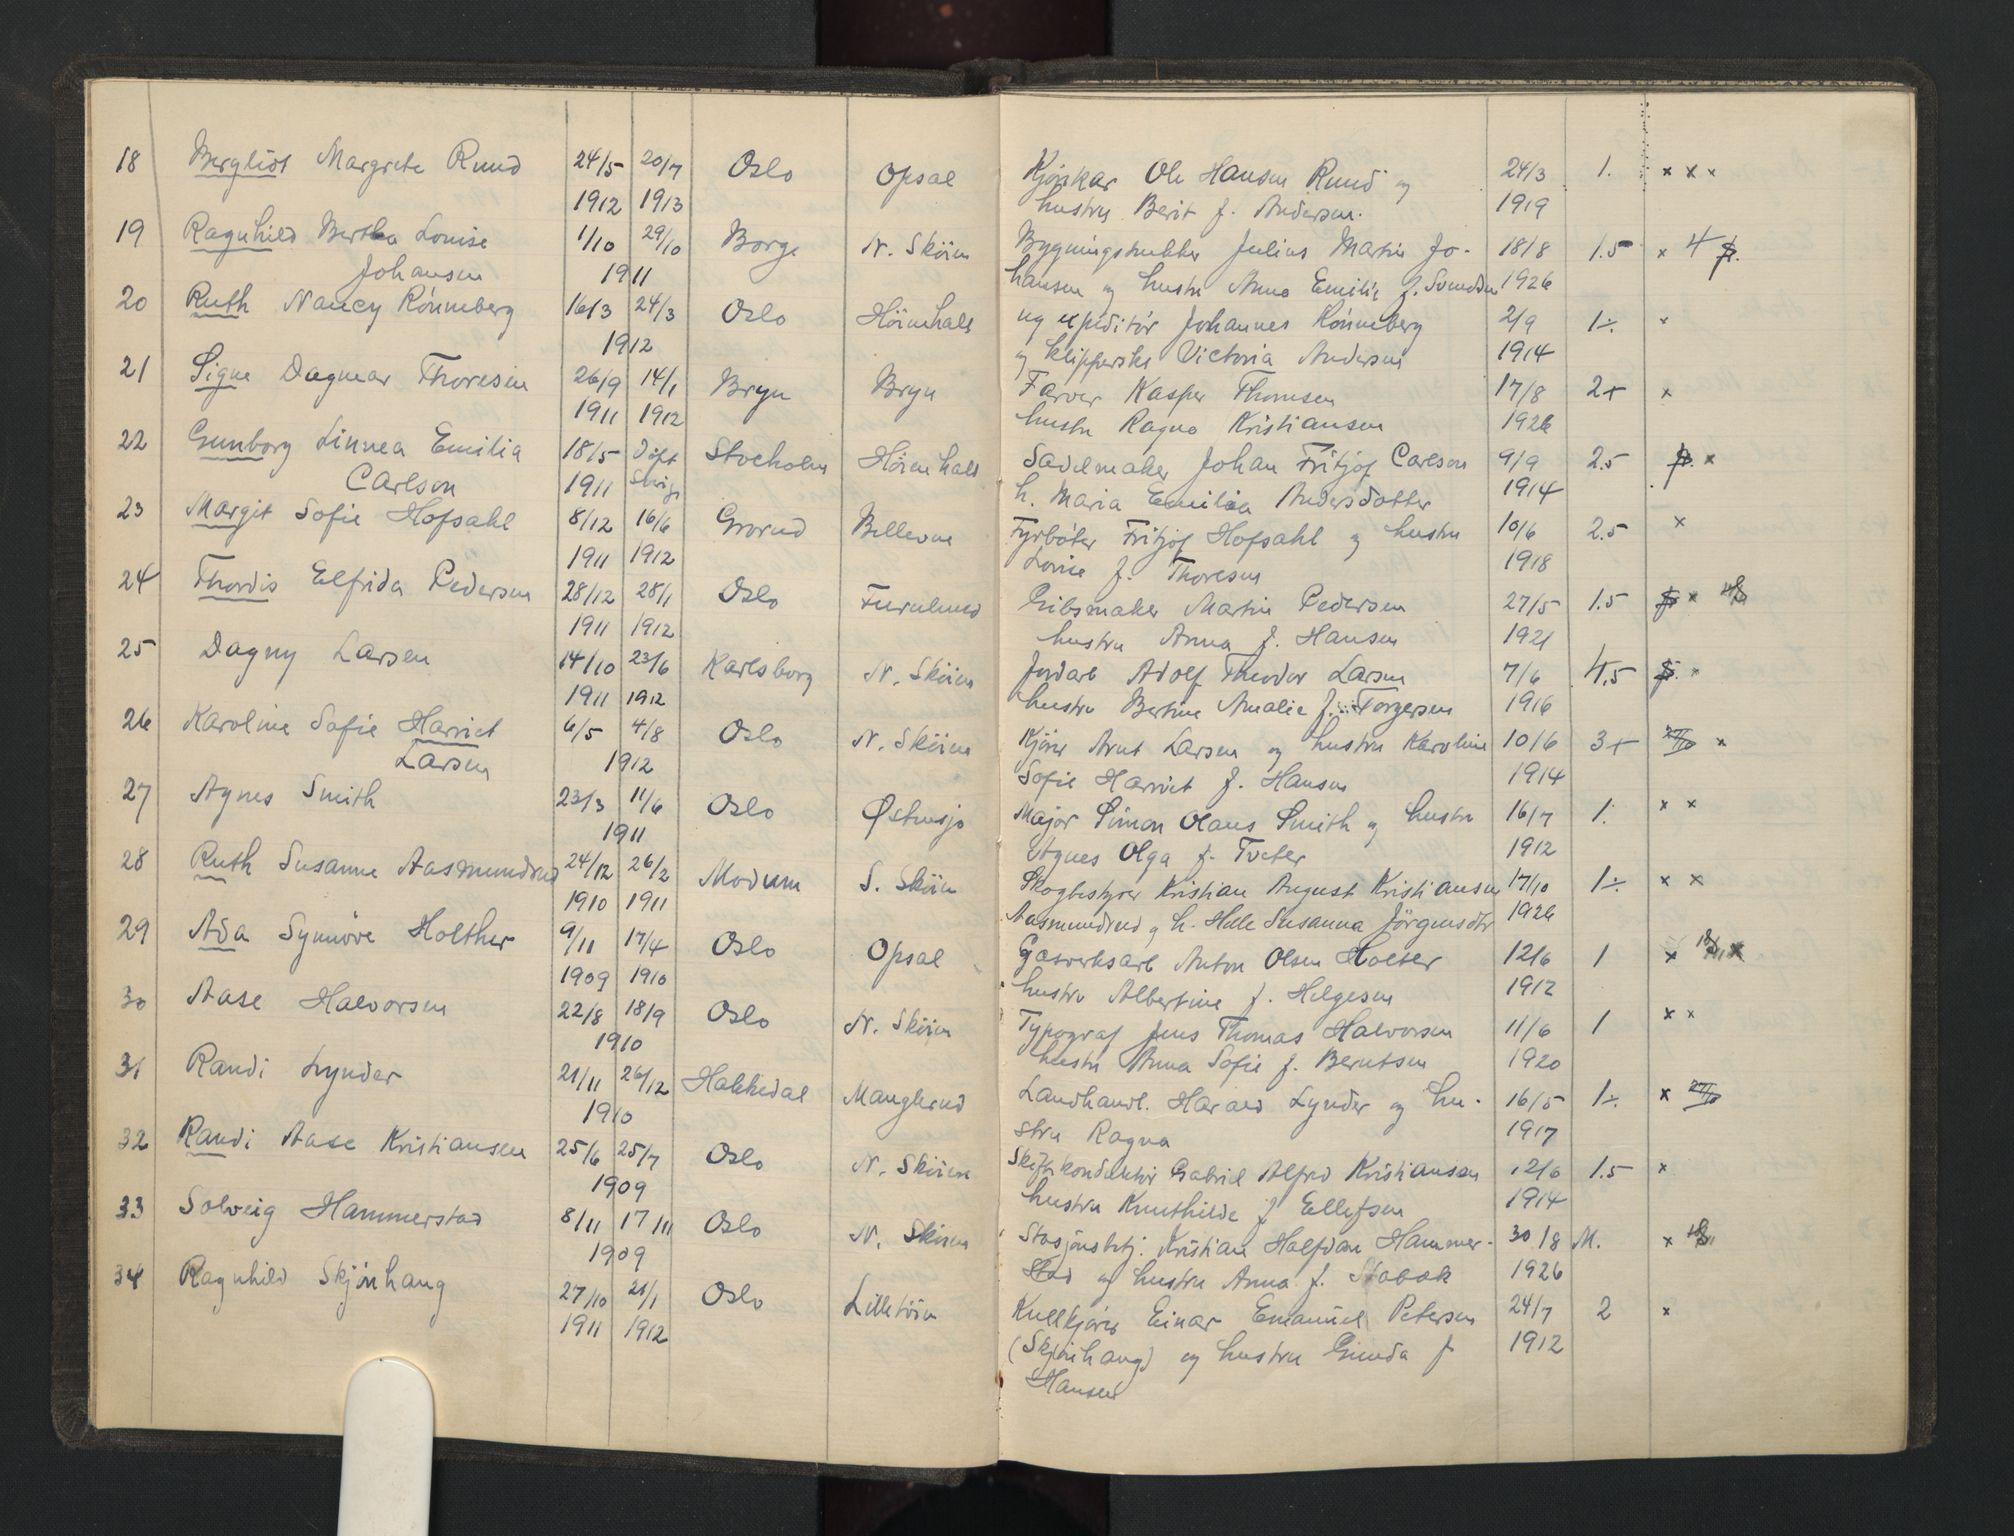 18 Bergliot Margrete Ruud 24/5 20/7 Oslo Opsal Kjørekar Ole Hansen Ruud og 24/3 1. x x x
1912 1913 hustru Berit f. Andersen. 1919
19 Ragnhild Bertha Louise 1/10 29/10 Borge N. Skøien Bygningssnekker Julius Martin Jo- 18/8 1.5 x 4
Johansen 1911 hansen og hustru Anna Emilie f. Svendsen 1926
20 Ruth Nancy Rönneberg 16/3 24/3 Oslo Höienhald ug expeditör Johannes Rönneberg 2/9 1÷. x
1912 og klipperske Victoria Andersen 1914
21 Signe Dagmar Thoresen 26/9 14/1 Bryn Bryn Farver Kasper Thoresen 17/8 2+ x
1911 1912 hustru Ragna Kristiansen 1926
22 Gunborg Linnea Emilia 18/5 Döpt Stocholm Höienhald Sadelmaker Johan Fritjof Carlson 9/9 2.5 x
Carlson 1911 Sverige h. Maria Emilia Andersdotter 1914
23 Margit Sofie Hofsahl 8/12 16/6 Grorud Bellevue Fyrböter Fritjof Hofsahl og hustru 10/6 2.5 x
1911 1912 Lovise f. Thoresen 1918
24 Thordis Elfrida Pedersen 28/12 28/1 Oslo Furulund Gibsmaker Martin Pedersen 27/5 1.5 x
1911 1912 hustru Anna f. Hansen 1921
25 Dagny Larsen 14/10 23/6 Karlsborg N. Skøien Jordarb Adolf Theodor Larsen 7/6 4.5 x
1911 1912 hustru Bertine Amalie f. Torgersen 1916
26 Karoline Sofie Harriet 6/5 4/8 Oslo N. Skøien Kjører Arnt Larsen og hustru Karoline 10/6 3+ x
Larsen 1912 Sofie Harriet f. Hansen 1914
27 Agnes Smith 23/3 11/6 Oslo Østensjø Major Simon Olaus Smith og hustru 16/7 1. x x
1911 Agnes Olga f. Tveter 1912
28 Ruth Susanne Aasmundrud 24/12 26/2 Modum S. Skøien Skogbestyrer Kristian August Kristiansen 17/10 1÷ x x
1910 1911 Aasmundrud og h. Helle Susanna Jörgensdtr 1926
29 Ada Synnöve Holther 9/11 17/4 Oslo Opsal Gasverksarb Anton Olsen Holter 12/6 1 x x
1909 1910 hustru Albertine f. Helgesen 1912
30 Aase Halvorsen 22/8 18/9 Oslo N. Skøien Typograf Jens Thomas Halvorsen 11/6 1 x x
1910 hustru Anna Sofie f. Berntsen 1920
31 Randi Lynder 21/11 26/12 Hakkedal Manglerud Landhandl. Harald Lynder og hu- 16/5 1÷. x
1910 stru Ragna 1917
32 Randi Aase Kristiansen 25/6 25/7 Oslo N. Skøien Skiftekonduktör Gabriel Alfred Kristiansen 12/6 1.5 x
1909 hustru Knuthilde f Ellefsen 1914
33 Solveig Hammerstad 8/11 17/11 Oslo N. Skøien Stasjonsbetj. Kristian Halfdan Hammer- 30/8 M. x
1909 stad og hustru Anna f. Stabæk 1926
34 Ragnhild Skjönhaug 27/10 21/1 Oslo Lilletöien Kullkjörer Einar Emanuel Petersen 24/7 2 x
1911 1912 (Skjönhaug) og hustru Gunda f 1912
Hansen